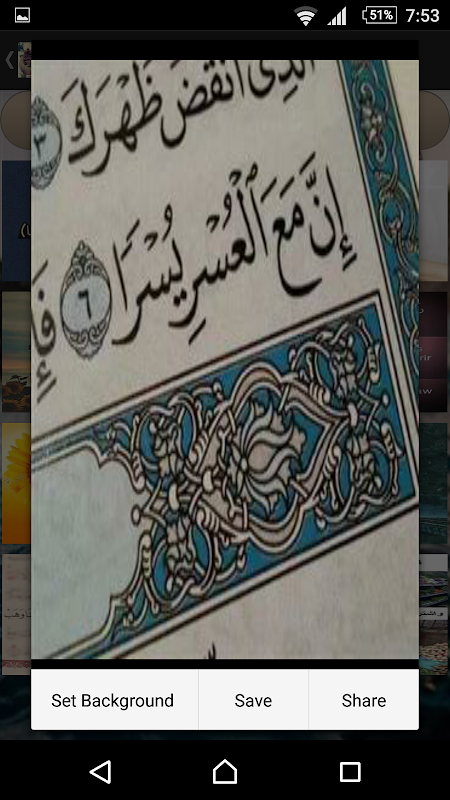 51% 7:53
الَّذِي أَنقَضَ ظَهْرَكَ ٣
إِنَّ مَعَ الْعُسْرِ يُسْرًا ٦ فَإِ
Set Background Save Share